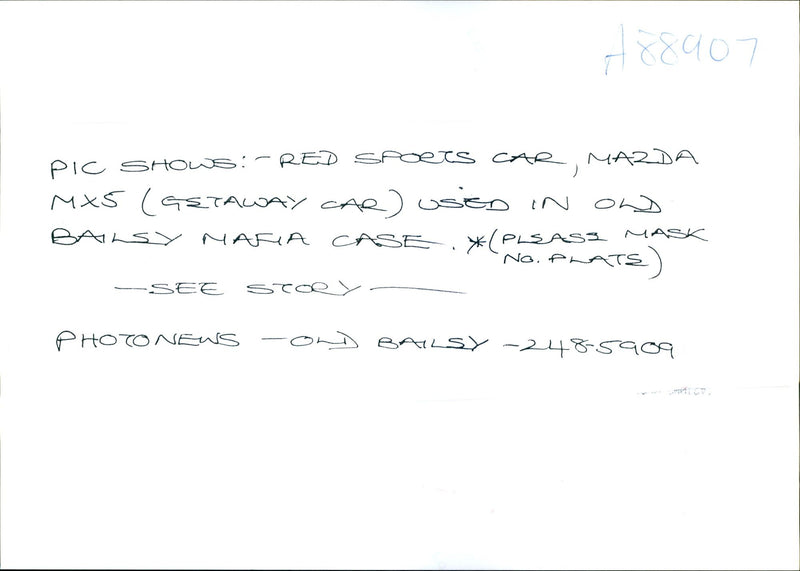 A88907
PIC SHOWS:- RED SPORTS CAR, MAZDA
MX5 (GETAWAY CAR) USED IN OLD
BAILEY MAFIA CASE. *(PLEASE MASK
NO. PLATE)
—SEE STORY—
PHOTONEWS - OLD BAILEY - 248-5909